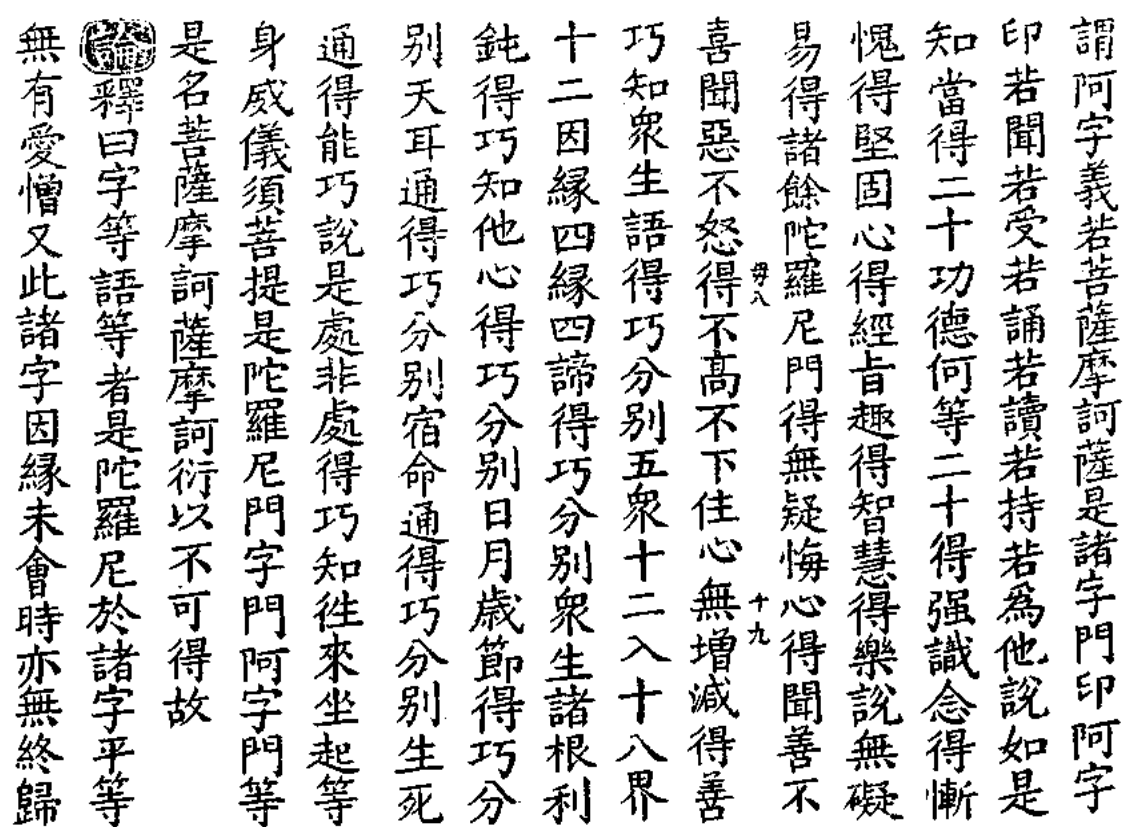 謂阿字義若菩薩摩訶薩是諸字門印阿字
印若聞若受若誦若讀若持若爲他說如是
知當得二十功德何等二十得强識念得慚
愧得堅固心得經旨趣得智慧得樂說無礙
易得諸餘陀羅尼門得無疑悔心得聞善不
喜聞惡不怒得不高不下住心無增減得善
毋八
十九
巧知衆生語得巧分别五衆十二入十八界
十二因緣四緣四諦得巧分别衆生諸根利
鈍得巧知他心得巧分别日月歲節得巧分
别天耳通得巧分别宿命通得巧分别生死
通得能巧說是處非處得巧知徃來坐起等
身威儀須菩提是陀羅尼門字門阿字門等
是名菩薩摩訶薩摩訶衍以不可得故
論釋曰字等語等者是陀羅尼於諸字平等
無有愛憎又此諸字因緣未會時亦無終歸